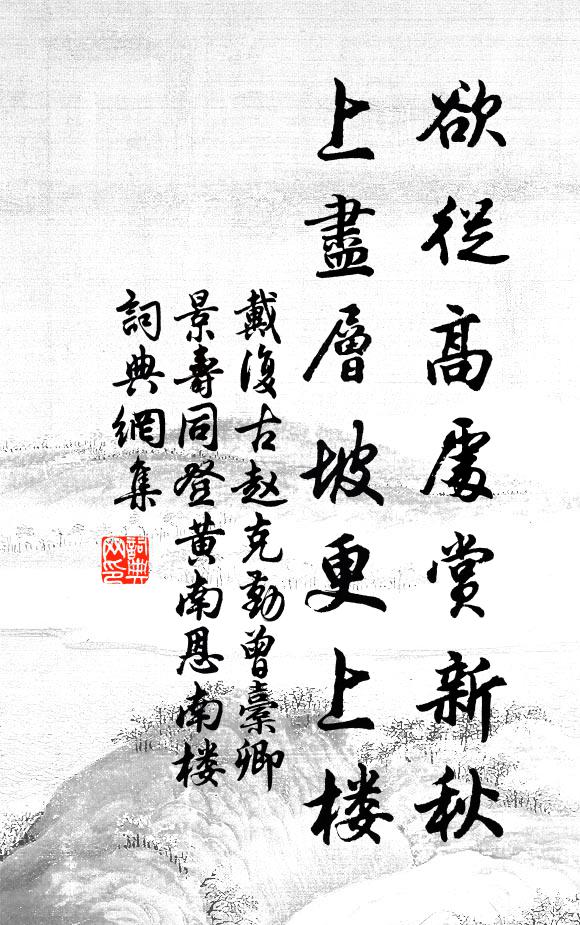 欲從高處賞新秋
上盡層坡更上楼
戴復古赵克勤曾橐卿
景壽同登黄南恩南楼
詞典網集
詞典
网印